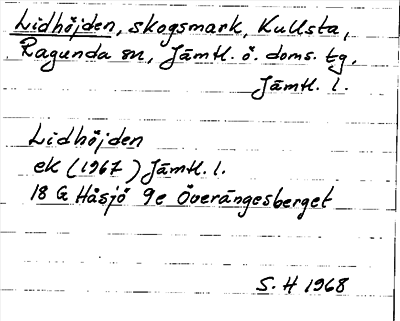 Lidhöjden, skogsmark, Kullsta,
Ragunda sn, Jämtl. ö. doms. tg,
Jämtl. l.
Lidhöjden
ek (1967) Jämtl. l.
18 G Håsjö 9e Överängesberget
S. H 1968